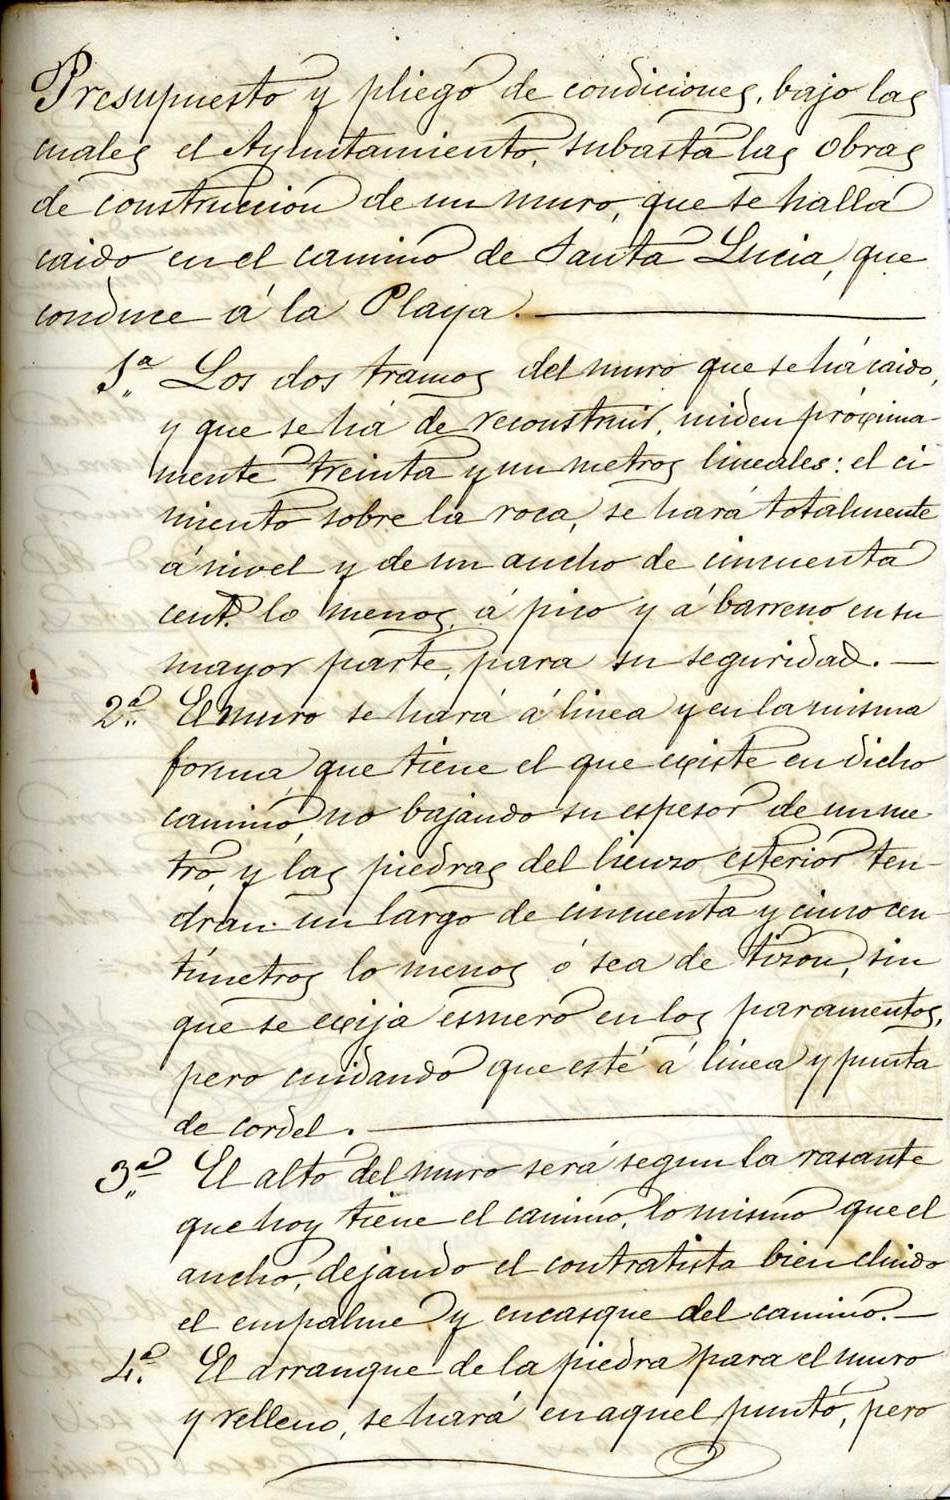 Presupuesto y pliego de condiciones, bajo las
cuales el Ayuntamiento, subasta las obras
de construccion de un muro, que se halla
caido en el camino de Santa Lucia, que
conduce á la Playa.
1ª Los dos tramos del muro que se há caido,
y que se há de reconstruir, miden próxima-
mente treinta y un metros lineales: el ci-
miento sobre la roca, se hará totalmente
á nivel y de un ancho de cincuenta
cent.s lo menos, á pico y á barreno en su
mayor parte, para su seguridad.
2ª El muro se hará á linea y en la misma
forma, que tiene el que existe en dicho
camino, no bajando su espesor de un me-
tro, y las piedras del lienzo esterior ten-
dran un largo de cincuenta y cinco cen-
tímetros lo menos ó sea de tizon, sin
que se exija esmero en los paramentos,
pero cuidando que esté á línea y punta
de cordel.
3ª El alto del muro será segun la rasante
que hoy tiene el camino, lo mismo que el
ancho, dejando el contratista bien
el empalme y encasque del camino.
4ª El arranque de la piedra para el muro
y relleno, se hará en aquel punto, pero